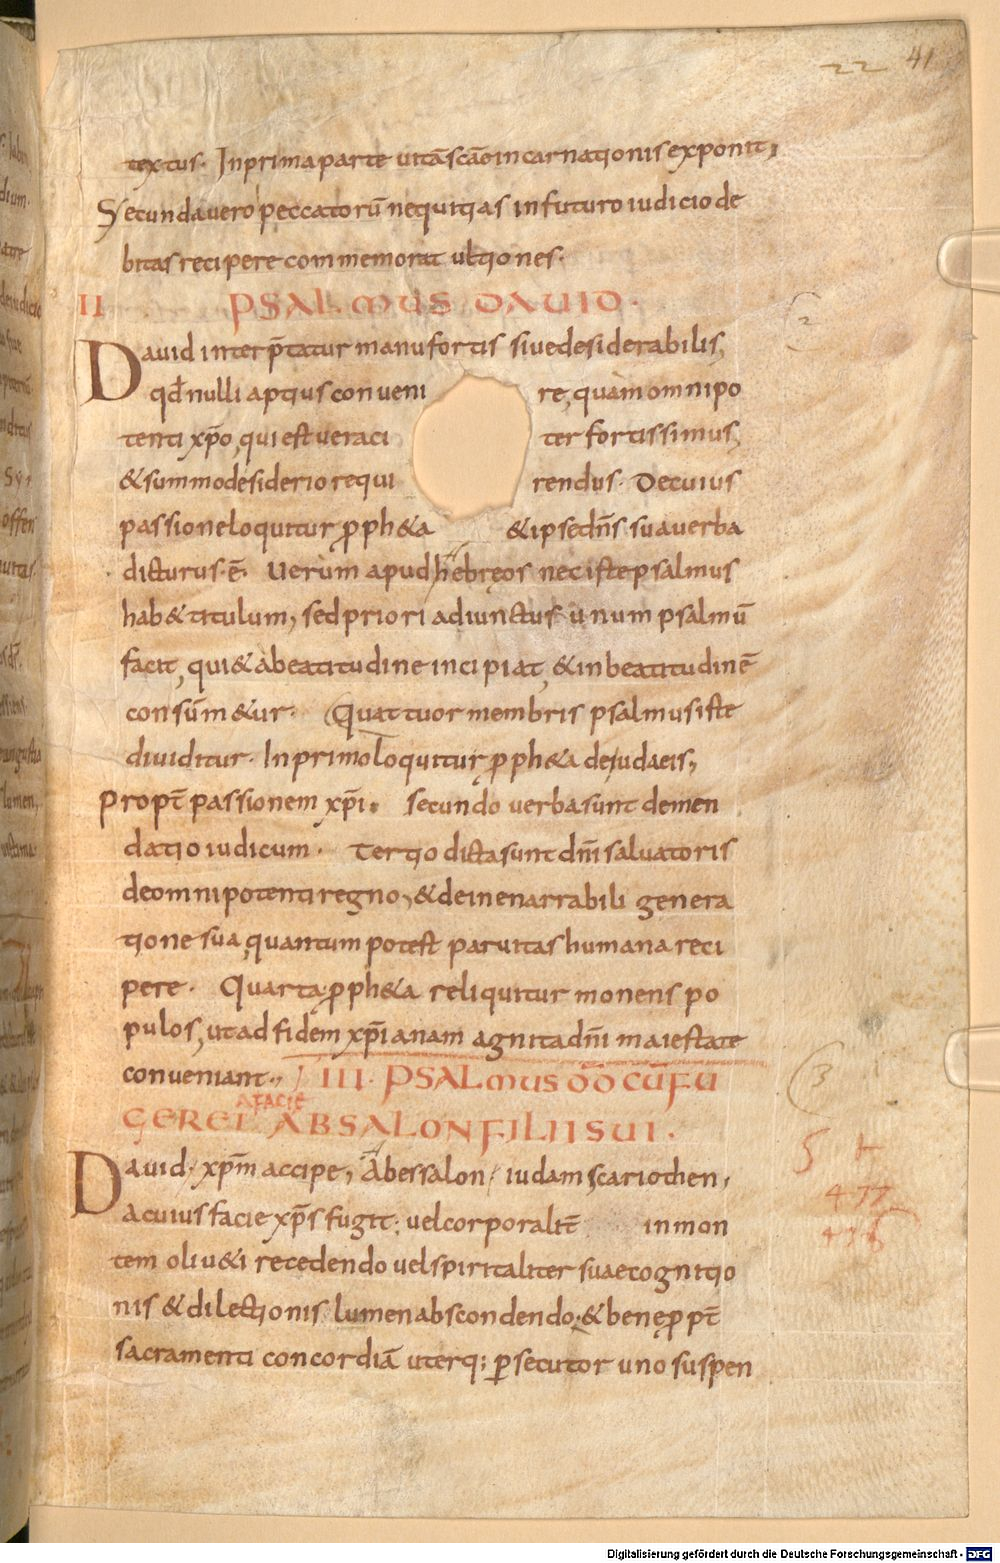 22 41
textus. Inprima parte uitā scāe incarnationis exponit;
Secunda uero peccatorū nequitias in futuro iudicio de
bitas recipere commemorat ultiones.
II PSALMUS DAUID.
Dauid interp̄tatur manu fortis siue desiderabilis,
qđ nulli aptius conueni re, quam omnipo
tenti xp̄o, qui est ueraci ter fortissimus,
& summo desiderio requi rendus. De cuius
passione loquitur ꝓph&a & ipse dn̄s sua uerba
dicturus ē. Uerum apud hebręos nec iste psalmus
hab& titulum, sed priori adiunctus unum psalmū
facit, qui & a beatitudine incipiat, & in beatitudinē
consūm&ur. Quattuor membris psalmus iste
diuiditur. In primo loquitur ꝓph&a de iudaeis,
propt̄ passionem xp̄i. secundo uerba sunt demen
datio iudicum. Tertio dicta sunt dn̄i saluatoris
de omnipotenti regno, & de inenarrabili genera
tione sua, quantum potest paruitas humana reci
pere. Quarta ꝓph&a reliquitur monens po
pulos, ut ad fidem xp̄ianam agnita dn̄i maiestate
conueniant., III. PSALmus DD CŪ FU
GERET A FACIE ABSALON FILII SUI.
Dauid xp̄m accipe, Abessalon iudam scariothen,
a cuius facie xp̄s fugit; uel corporalit̄ in mon
tem oliu&i recedendo uel spiritaliter suae cognitio
nis & dilectionis lumen abscondendo; & bene ꝓpt̄
sacramenti concordiā uterq; ꝑsecutor uno suspen
2
3
5 t
477
Digitalisierung gefördert durch die Deutsche Forschungsgemeinschaft - DFG